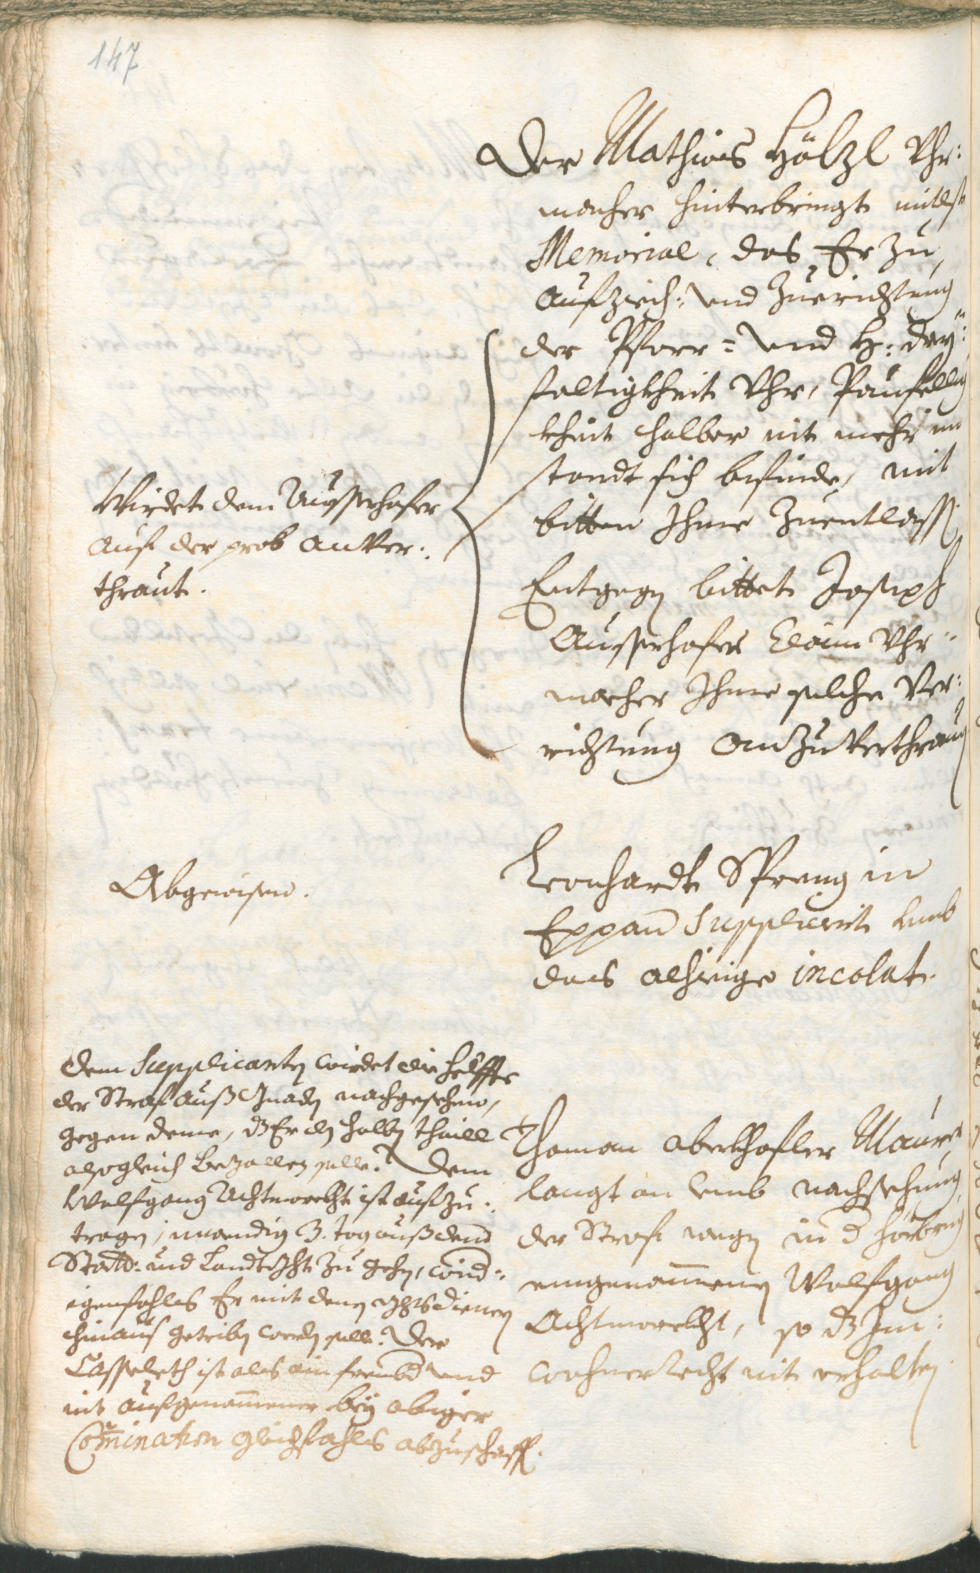 147
Der Mathias Hölzl Uhr:
macher hinterbringt mitlst
Memorial, das Er zu
aufziech: und Zuerichtung
der Pfarr= und H: Drey=
faltigkheit Uhr, Paufellig
kheit halber nit mehr im
standt sich befinde, mit
bitten Ihme zuentlassen
Wirdet dem Ausserhofer
auf der prob anver:
thraut.
Entgegen bittet Joseph
Ausserhofer Uhr=
macher Ihme solche Ver:
richtung anzuverthrauen
Abgewisen.
Leonhardt Spreng in
Eppan Supplicirt umb
das alhirige incolat.
Dem Supplicanten wirdet die helffte
der Straf auß Gnaden nachgesehen,
gegen deme, dz Er den halben thaill
alsogleich bezallen solle. Dem
Wolfgang Achtmarckht ist aufzu:
tragen, inwendig 3. tag auß dem
Statt: und Landtgeht zu gehen, widri=
genfahls Er mit denen Ghtsdienern
hinauß getriben werden solle. Der
ist als ein frembd und
nit aufgenommener bey obiger
Comination gleichfahls abzuschaffen.
Thoman Oberkhofler Maurer
langt an umb nachsehung
der Straf wegen in d Hörberg
eingenommenen Wolfgang
Achtmarckht, so dz Inn:
wohner Recht nit erhalten